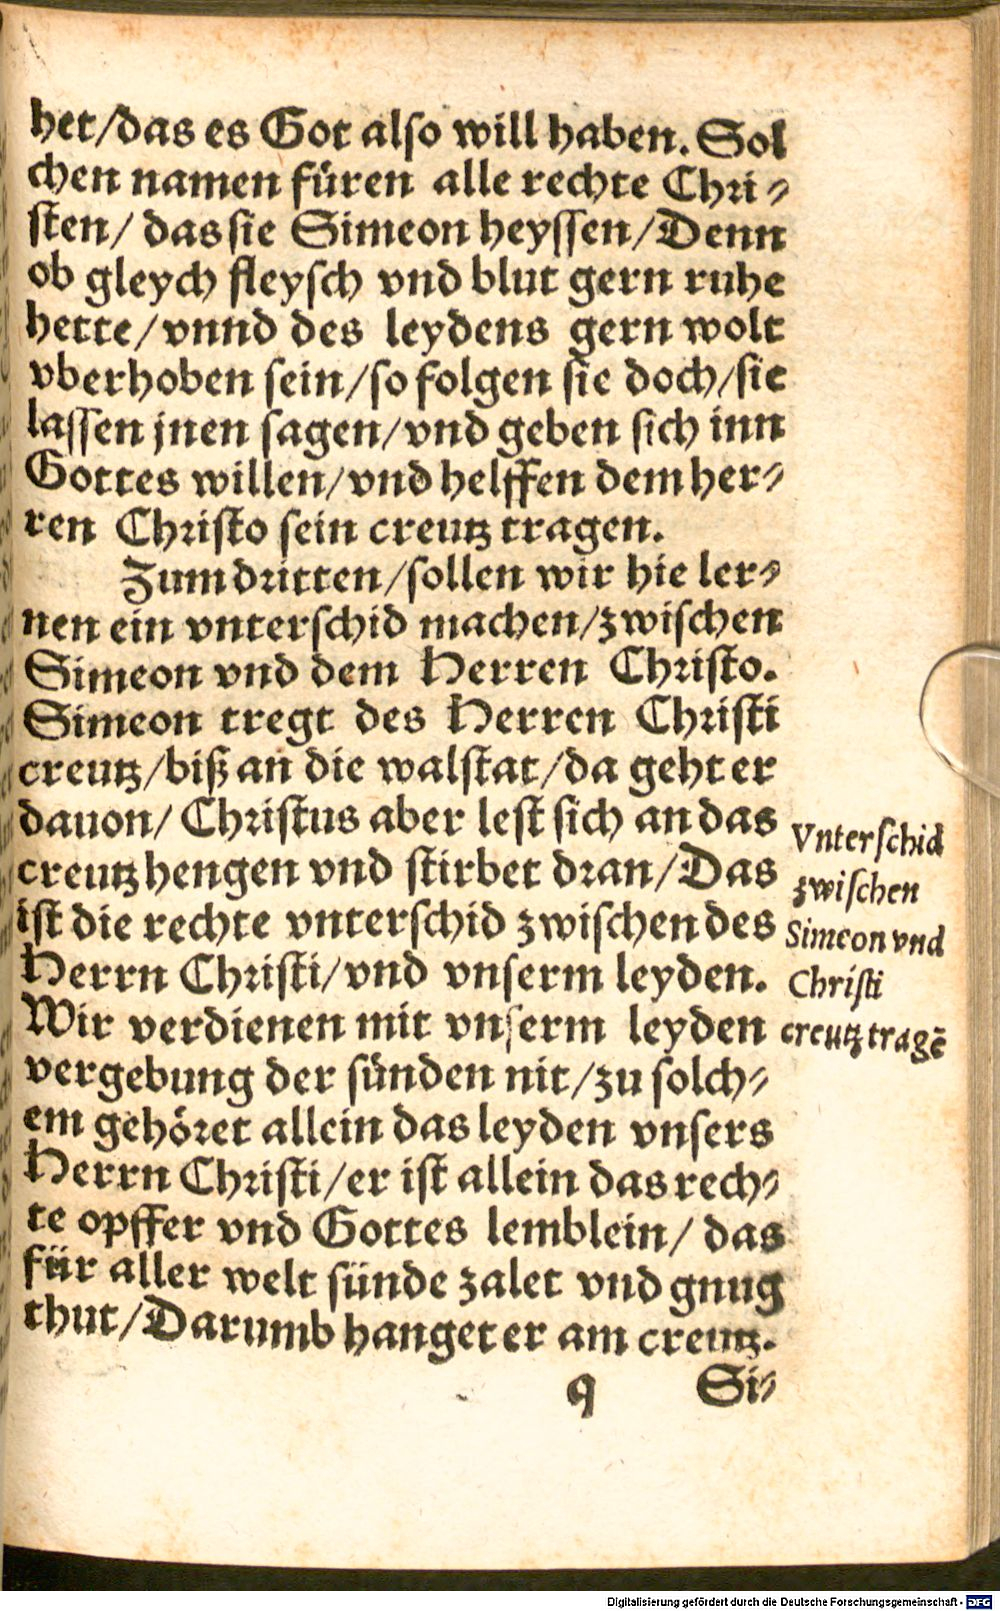 het/das es Got also will haben. Sol
chen namen füren alle rechte Chri-
sten/ das sie Simeon heyssen/Denn
ob gleych fleysch vnd blut gern ruhe
hette/vnnd des leydens gern wolt
vberhoben sein/so folgen sie doch/sie
lassen jnen sagen/vnd geben sich inn
Gottes willen/vnd helffen dem her-
ren Christo sein creutz tragen.
Zum dritten/sollen wir hie ler-
nen ein vnterschid machen/zwischen
Simeon vnd dem Herren Christo.
Simeon tregt des Herren Christi
creutz/biß an die walstat/da geht er
dauon/ Christus aber lest sich an das
creutz hengen vnd stirbet dran/Das
ist die rechte vnterschid zwischen des
Herrn Christi/vnd vnserm leyden.
Wir verdienen mit vnserm leyden
vergebung der sünden nit/zu solch-
em gehöret allein das leyden vnsers
Herrn Christi/er ist allein das rech-
te opffer vnd Gottes lemblein/ das
für aller welt sünde zalet vnd gnug
thut/Darumb hanget er am creutz.
q Si-
Vnterschid
zwischen
Simeon vnd
Christi
creutz tragē
Digitalisierung gefördert durch die Deutsche Forschungsgemeinschaft - DFG